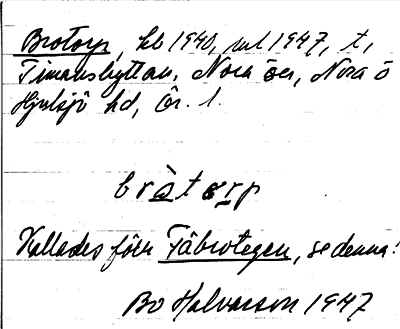 Brotorp, hb 1940, ml 1947, t,
Timansbyttan, Nora ö
Hjulsjö hd, Ör. l.
bròtorp
Kallades förr Täbrotegen, se denna!
Bo Halvarson 1947